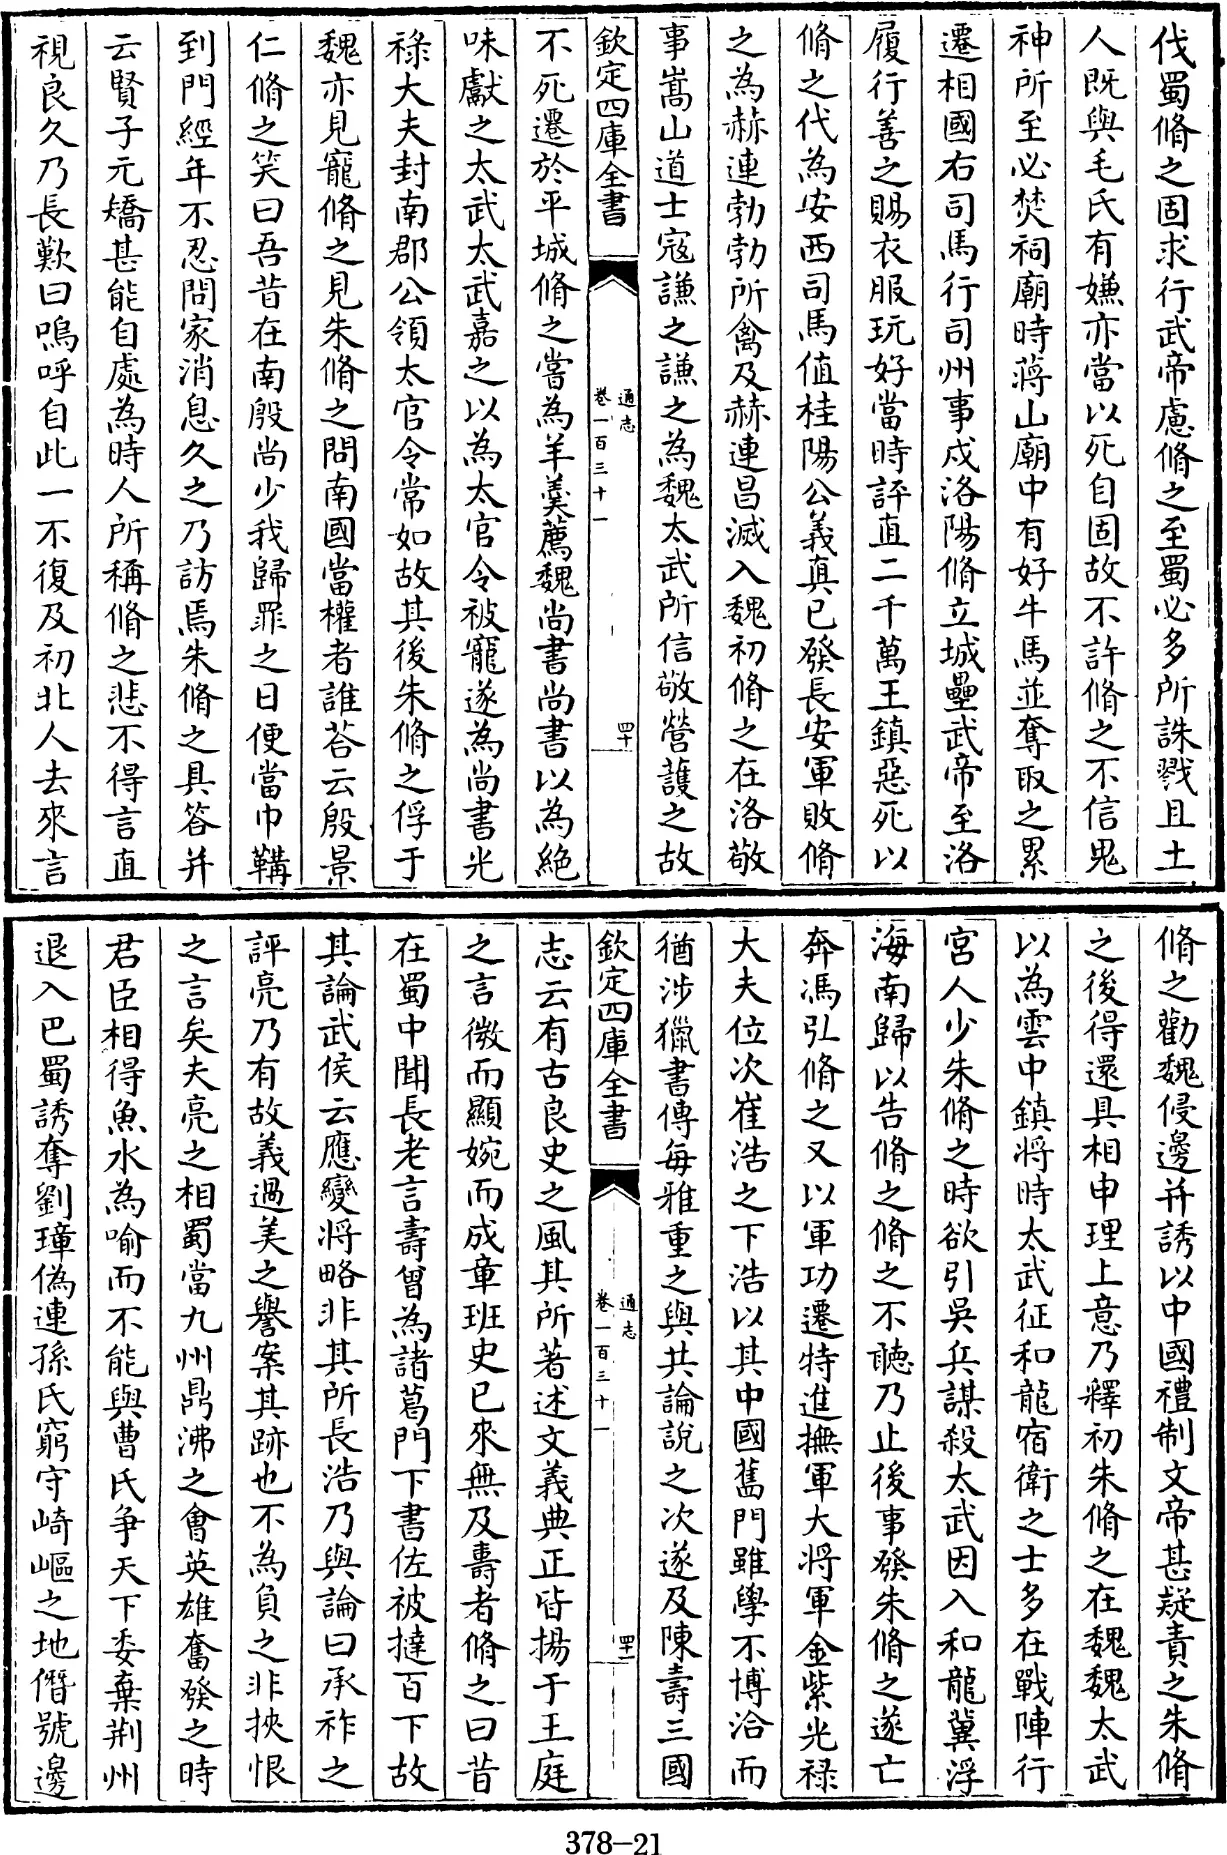 伐蜀脩之固求行武帝慮脩之至蜀必多所誅戮且土
人既與毛氏有嫌亦當以死自固故不許脩之不信鬼
神所至必焚祠廟時蔣山廟中有好牛馬並奪取之累
遷相國右司馬行司州事戍洛陽脩立城壘武帝至洛
履行善之賜衣服玩好當時評直二千萬王鎮惡死以
脩之代為安西司馬值桂陽公義真已發長安軍敗脩
之為赫連勃勃所禽及赫連昌滅入魏初脩之在洛敬
事嵩山道士寇謙之謙之為魏太武所信敬營護之故
欽定四庫全書
通志
卷一百三十一
四十
不死遷於平城脩之嘗為羊羹薦魏尚書尚書以為絕
味獻之太武太武嘉之以為太官令被寵遂為尚書光
祿大夫封南郡公領太官令常如故其後朱脩之俘于
魏亦見寵脩之見朱脩之問南國當權者誰荅云殷景
仁脩之笑曰吾昔在南殷尚少我歸罪之日便當巾韝
到門經年不忍問家消息久之乃訪焉朱脩之具答并
云賢子元矯甚能自處為時人所稱脩之悲不得言直
視良久乃長歎曰嗚呼自此一不復及初北人去來言
脩之勸魏侵邊并誘以中國禮制文帝甚疑責之朱脩
之後得還具相申理上意乃釋初朱脩之在魏魏太武
以為雲中鎮將時太武征和龍宿衛之士多在戰陣行
宮人少朱脩之時欲引吳兵謀殺太武因入和龍冀浮
海南歸以告脩之脩之不聽乃止後事發朱脩之遂亡
奔馮弘脩之又以軍功遷特進撫軍大將軍金紫光祿
大夫位次崔浩之下浩以其中國舊門雖學不博洽而
猶涉獵書傳每雅重之與共論說之次遂及陳壽三國
欽定四庫全書
通志
卷一百三十一
四十一
志云有古良史之風其所著述文義典正皆揚于王庭
之言微而顯婉而成章班史已來無及壽者脩之曰昔
在蜀中聞長老言壽曾為諸葛門下書佐被撻百下故
其論武侯云應變將略非其所長浩乃與論曰承祚之
評亮乃有故義過美之譽案其跡也不為負之非挾恨
之言矣夫亮之相蜀當九州鼎沸之會英雄奮發之時
君臣相得魚水為喻而不能與曹氏爭天下委棄荆州
退入巴蜀誘奪劉璋偽連孫氏窮守崎嶇之地僭號邊
378-21